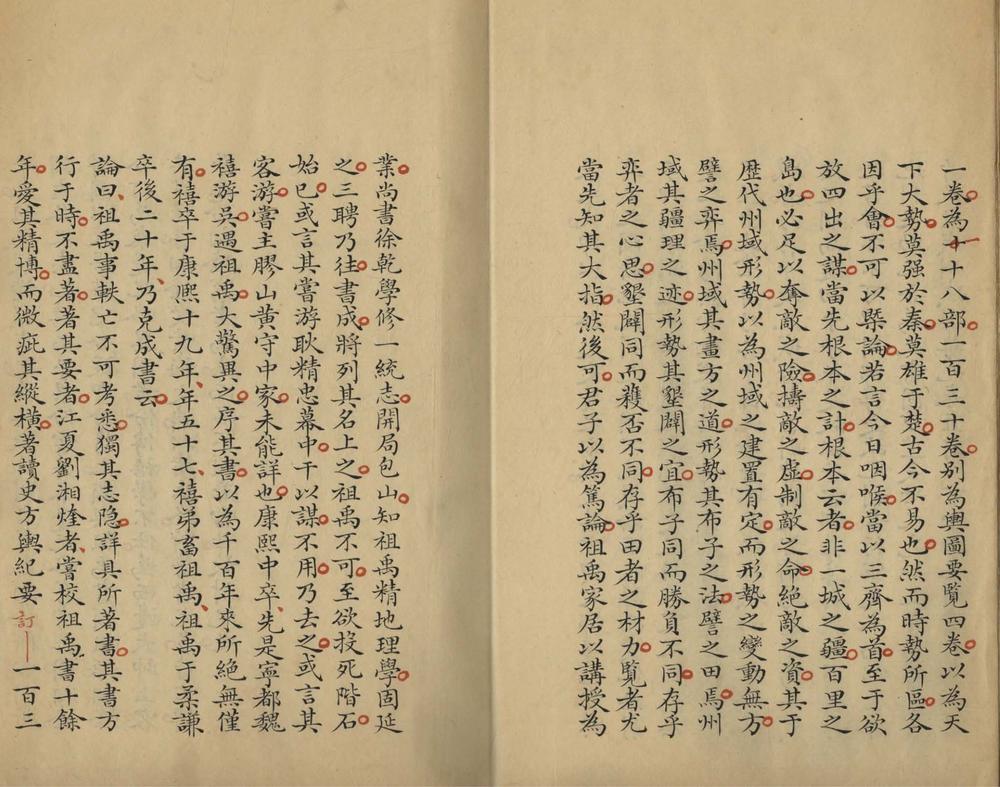 一卷為十十八部一百三十卷别為輿圖要覧四卷以為天
下大勢莫强於秦莫雄于楚古今不易也然而時勢所區各
因乎會不可以槩論若言今日咽喉當以三齊為首至于欲
放四出之謀當先根本之計根本云者非一城之疆百里之
島也必足以奪敵之險擣敵之虛制敵之命絶敵之資其于
歷代州域形勢以為州域之建置有定而形勢之變動無方
譬之弈焉州域其畫方之道形勢其布子之法譬之田焉州
域其疆理之迹形勢其墾闢之宜布子同而勝負不同存乎
弈者之心思墾闢同而穫否不同存乎田者之材力覧者尤
當先知其大指然後可君子以為篤論祖禹家居以講授為
業尚書徐乾學修一統志開局包山知祖禹精地理學固延
之三聘乃往書成將列其名上之祖禹不可至欲投死階石
始已或言其嘗游耿精忠幕中干以謀不用乃去之或言其
客游嘗主膠山黄守中家未能詳也康熙中卒先是寧都魏
禧游吳遇祖禹大驚異之序其書以為千百年來所絶無僅
有禧卒于康熙十九年年五十七禧弟畜祖禹祖禹于柔謙
卒後二十年乃克成書云
論曰祖禹事軼亡不可考悉獨其志隐詳具所著書其書方
行于時不盡著著其要者江夏劉湘煃者嘗校祖禹書十餘
年愛其精博而微疵其縱横著讀史方輿紀要訂一百三